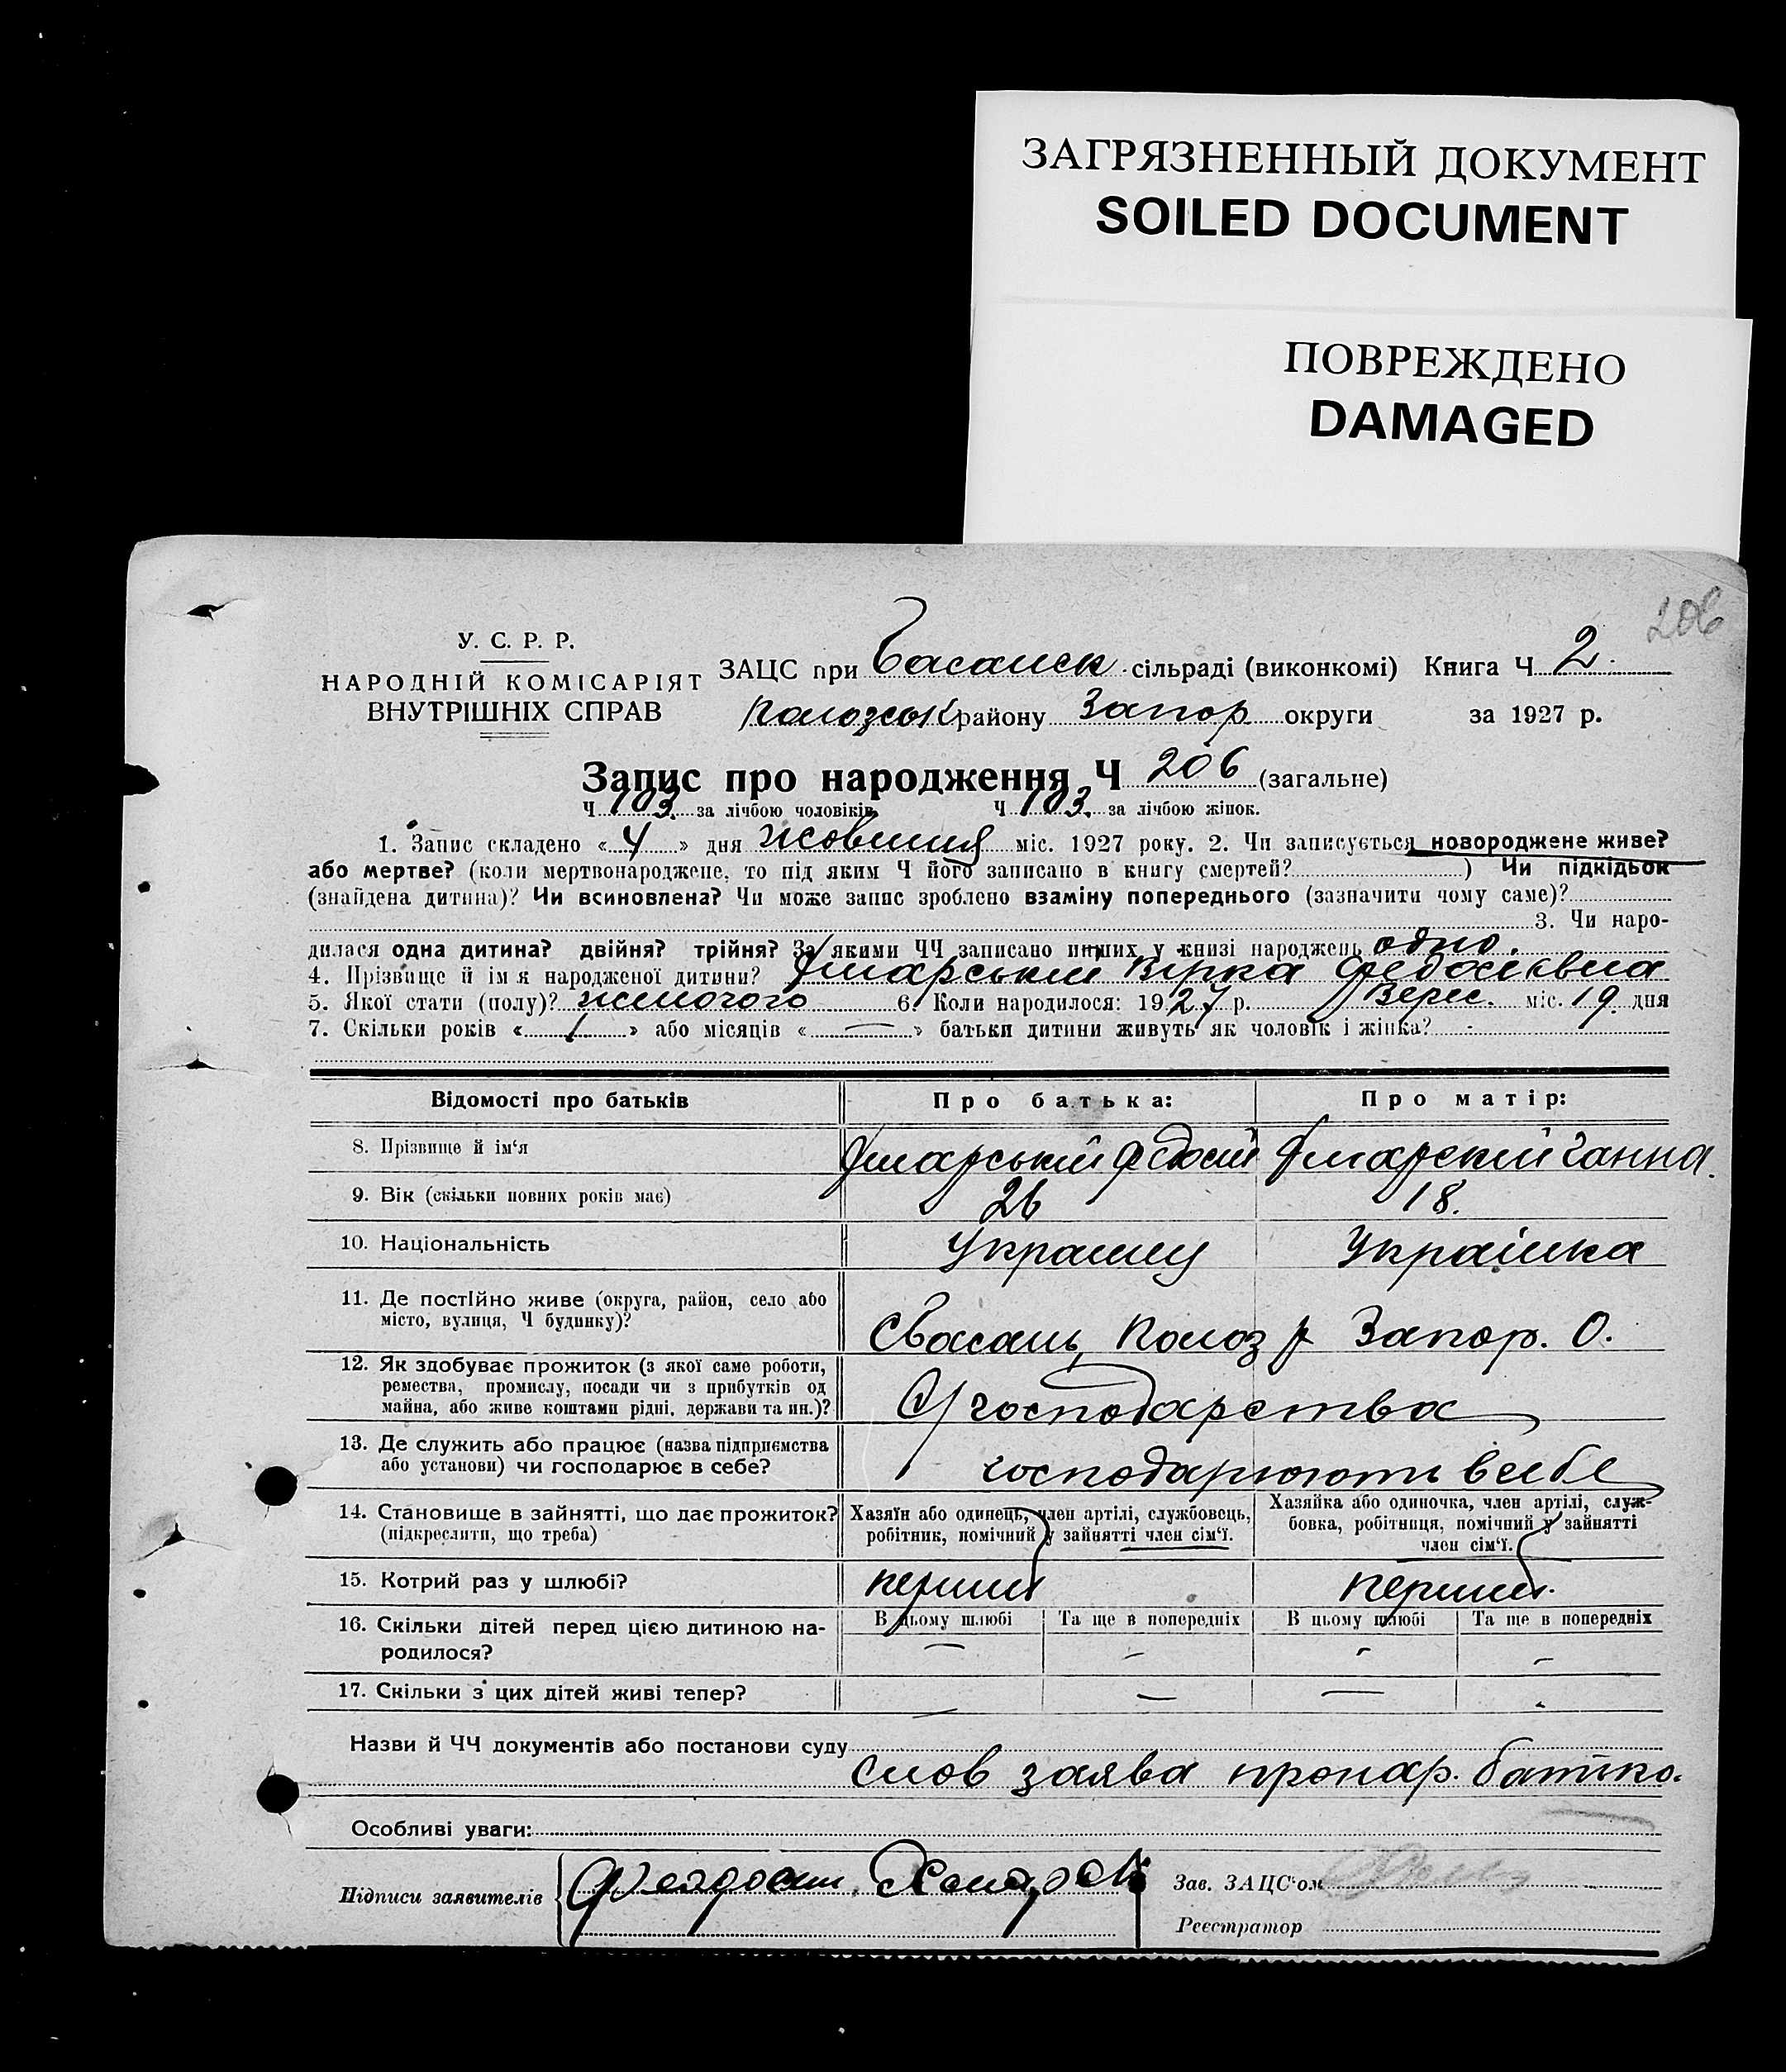 ЗАГРЯЗНЕННЫЙ ДОКУМЕНТ
SOILED DOCUMENT
ПОВРЕЖДЕНО
DAMAGED
206
У. С. Р. Р.
НАРОДНІЙ КОМІСАРІЯТ
ВНУТРІШНІХ СПРАВ
ЗАЦС при Басанск сільраді (виконкомі) Книга Ч 2.
району Запор округи за 1927 р.
Запис про народження Ч 206 (загальне)
Ч 103. за лічбою чоловіків Ч 103. за лічбою жінок.
1. Запис складено « 4 » дня жовтня міс. 1927 року. 2. Чи записується новороджене живе?
або мертве? (коли мертвонароджене, то під яким Ч його записано в книгу смертей? ) Чи підкідьок
(знайдена дитина)? Чи всиновлена? Чи може запис зроблено взаміну попереднього (зазначити чому саме)?
3. Чи наро-
дилася одна дитина? двійня? трійня? За якими ЧЧ записано инших у книзі народжень одно.
4. Прізвище й ім'я народженої дитини? Вірка
5. Якої стати (полу)? жіночого 6. Коли народилося: 1927 р. Верес. міс. 19 дня
7. Скільки років « 1 » або місяців « — » батьки дитини живуть як чоловік і жінка? -
Відомості про батьків
Про батька:
Про матір:
8. Прізвище й ім'я Федосій Ганна.
9. Вік (скільки повних років має) 26 18.
10. Національність Українц Українка
11. Де постійно живе (округа, район, село або
місто, вулиця, Ч будинку)?
Сбасань, р Запор. О.
12. Як здобуває прожиток (з якої саме роботи,
ремества, промислу, посади чи з прибутків од
майна, або живе коштами рідні, держави та ин.)?
господарства
13. Де служить або працює (назва підприємства
або установи) чи господарює в себе?
господарюють в себе
14. Становище в зайнятті, що дає прожиток?
(підкреслити, що треба)
Хазяїн або одинець, член артілі, службовець,
робітник, помічний у зайнятті член сім'ї.
Хазяйка або одиночка, член артілі, служ-
бовка, робітниця, помічний у зайнятті
член сім'ї.
15. Котрий раз у шлюбі? перший перший.
16. Скільки дітей перед цією дитиною на-
родилося?
В цьому шлюбі Та ще в попередніх В цьому шлюбі Та ще в попередніх
— - - -
17. Скільки з цих дітей живі тепер? — — — -
Назви й ЧЧ документів або постанови суду
слов заява пронар. батько.
Особливі уваги:
Підписи заявителів
Зав. ЗАЦС'ом
Реєстратор